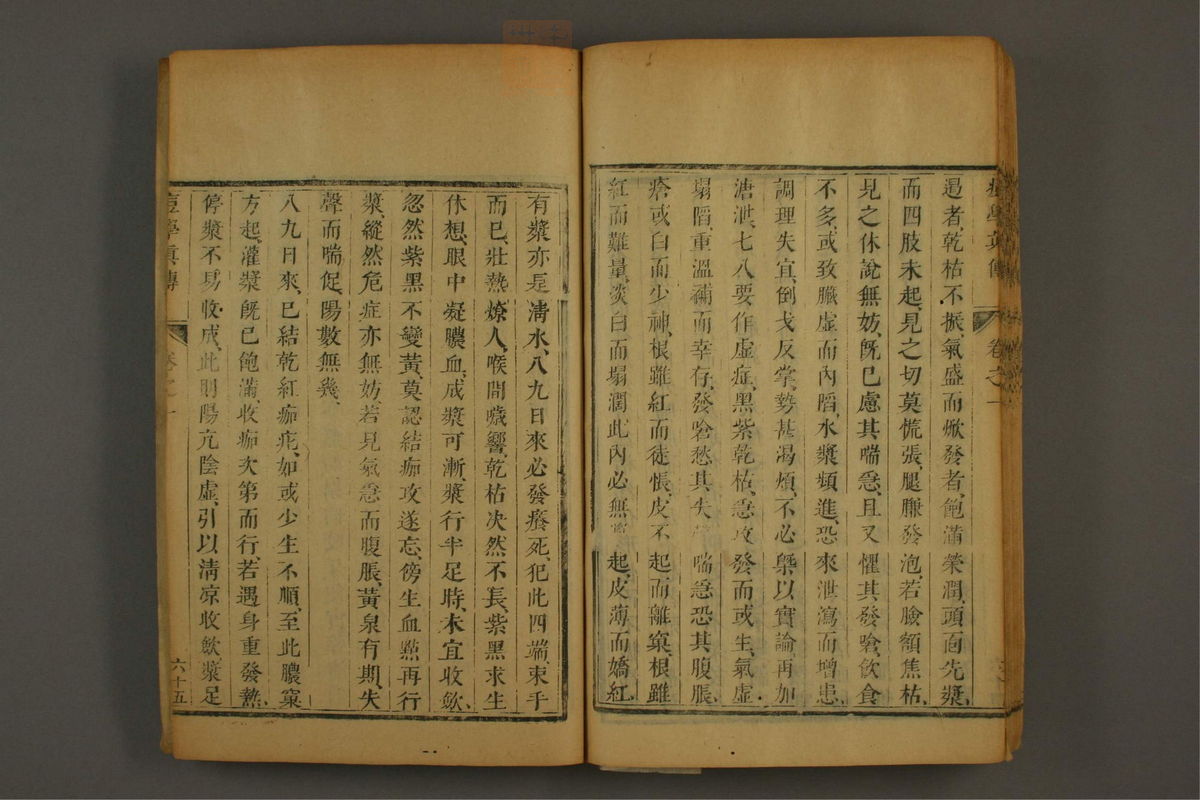 痘學真傳 卷之一
過者、乾枯不振、氣盛而焮發者、飽滿榮潤、頭面先漿、
而四肢未起、見之切莫慌張、腿臁發泡、若臉額焦枯、
見之休說無妨、既已慮其喘急、且又懼其發嗆、飲食
不多、或致臟虛而內陷、水漿頻進、恐來泄瀉而增患、
調理失宜、倒戈反掌、勢甚渴煩、不必槩以實論、再加
溏泄、七八要作虛症、黑紫乾枯、急攻發而或生、氣虛
塌陷、重溫補而幸存、發嗆愁其失 喘急恐其腹脹、
瘡或白而少神、根雖紅而徒悵、皮不起而離窠、根雖
紅而難量、淡白而塌潤、此內必無 起、皮薄而嬌紅、
有漿亦是清水、八九日來必發癢死、犯此四端、束手
而已、壯熱燎人、喉間嘶響、乾枯決然不長、紫黑求生
休想、眼中凝膿血、成漿可漸、漿行半足時、未宜收斂、
忽然紫黑不變黃、莫認結痂攻遂忘、傍生血點再行
漿、縱然危症亦無妨、若見氣急而腹脹、黃泉有期、失
聲而喘促、陽數無幾、
八九日來、已結乾紅痂疕、如或少生不順、至此膿窠
方起、灌漿既已飽滿、收痂次第而行、若遇身重發熱、
停漿不易收成、此明陽亢陰虛、引以清涼收斂、漿足
痘學真傳 卷之一 六十五